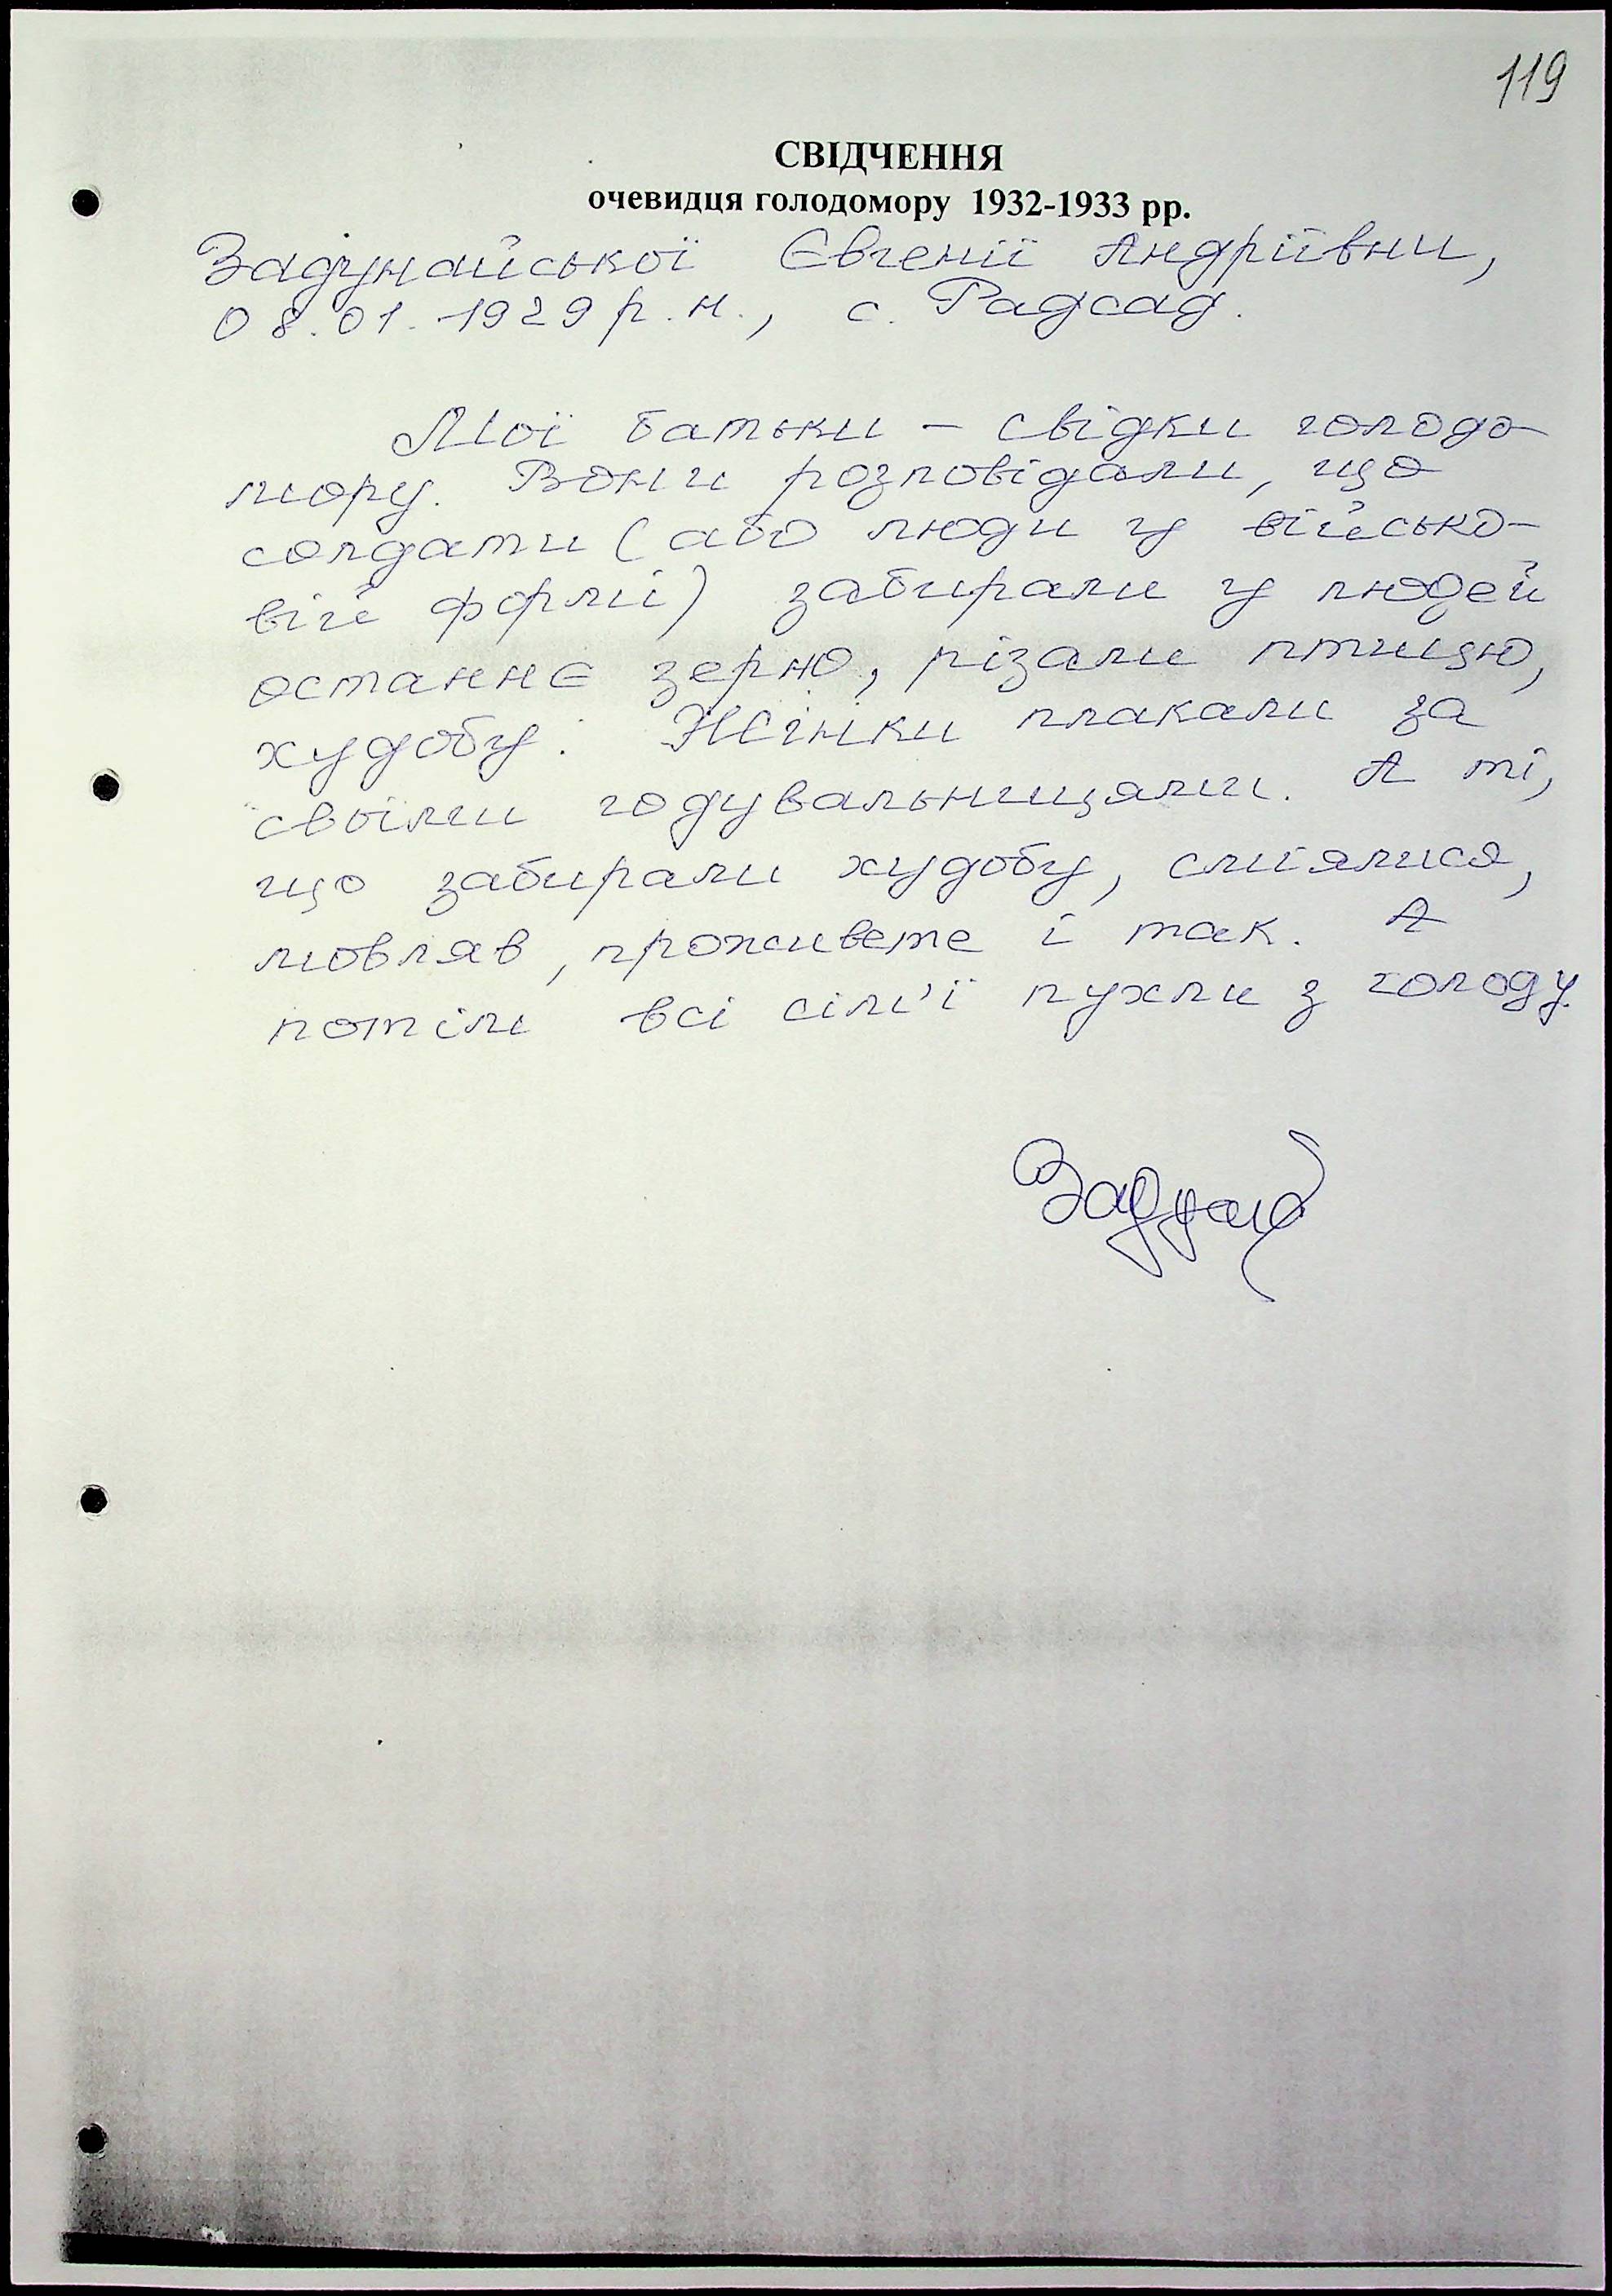 119
СВІДЧЕННЯ
очевидця голодомору 1932-1933 рр.
Задунайської Євгенії Андріївни,
08.01.1929 р.н., с. Радсад.
Мої батьки – свідки голодо-
мору. Вони розповідали, що
солдати (або люди у військо-
вій формі) забирали у людей
останнє зерно, різали птицю,
худобу. Жінки плакали за
своїми годувальницями. А ті,
що забирали худобу, сміялися,
мовляв, проживете і так. А
потім всі сім'ї пухли з голоду.